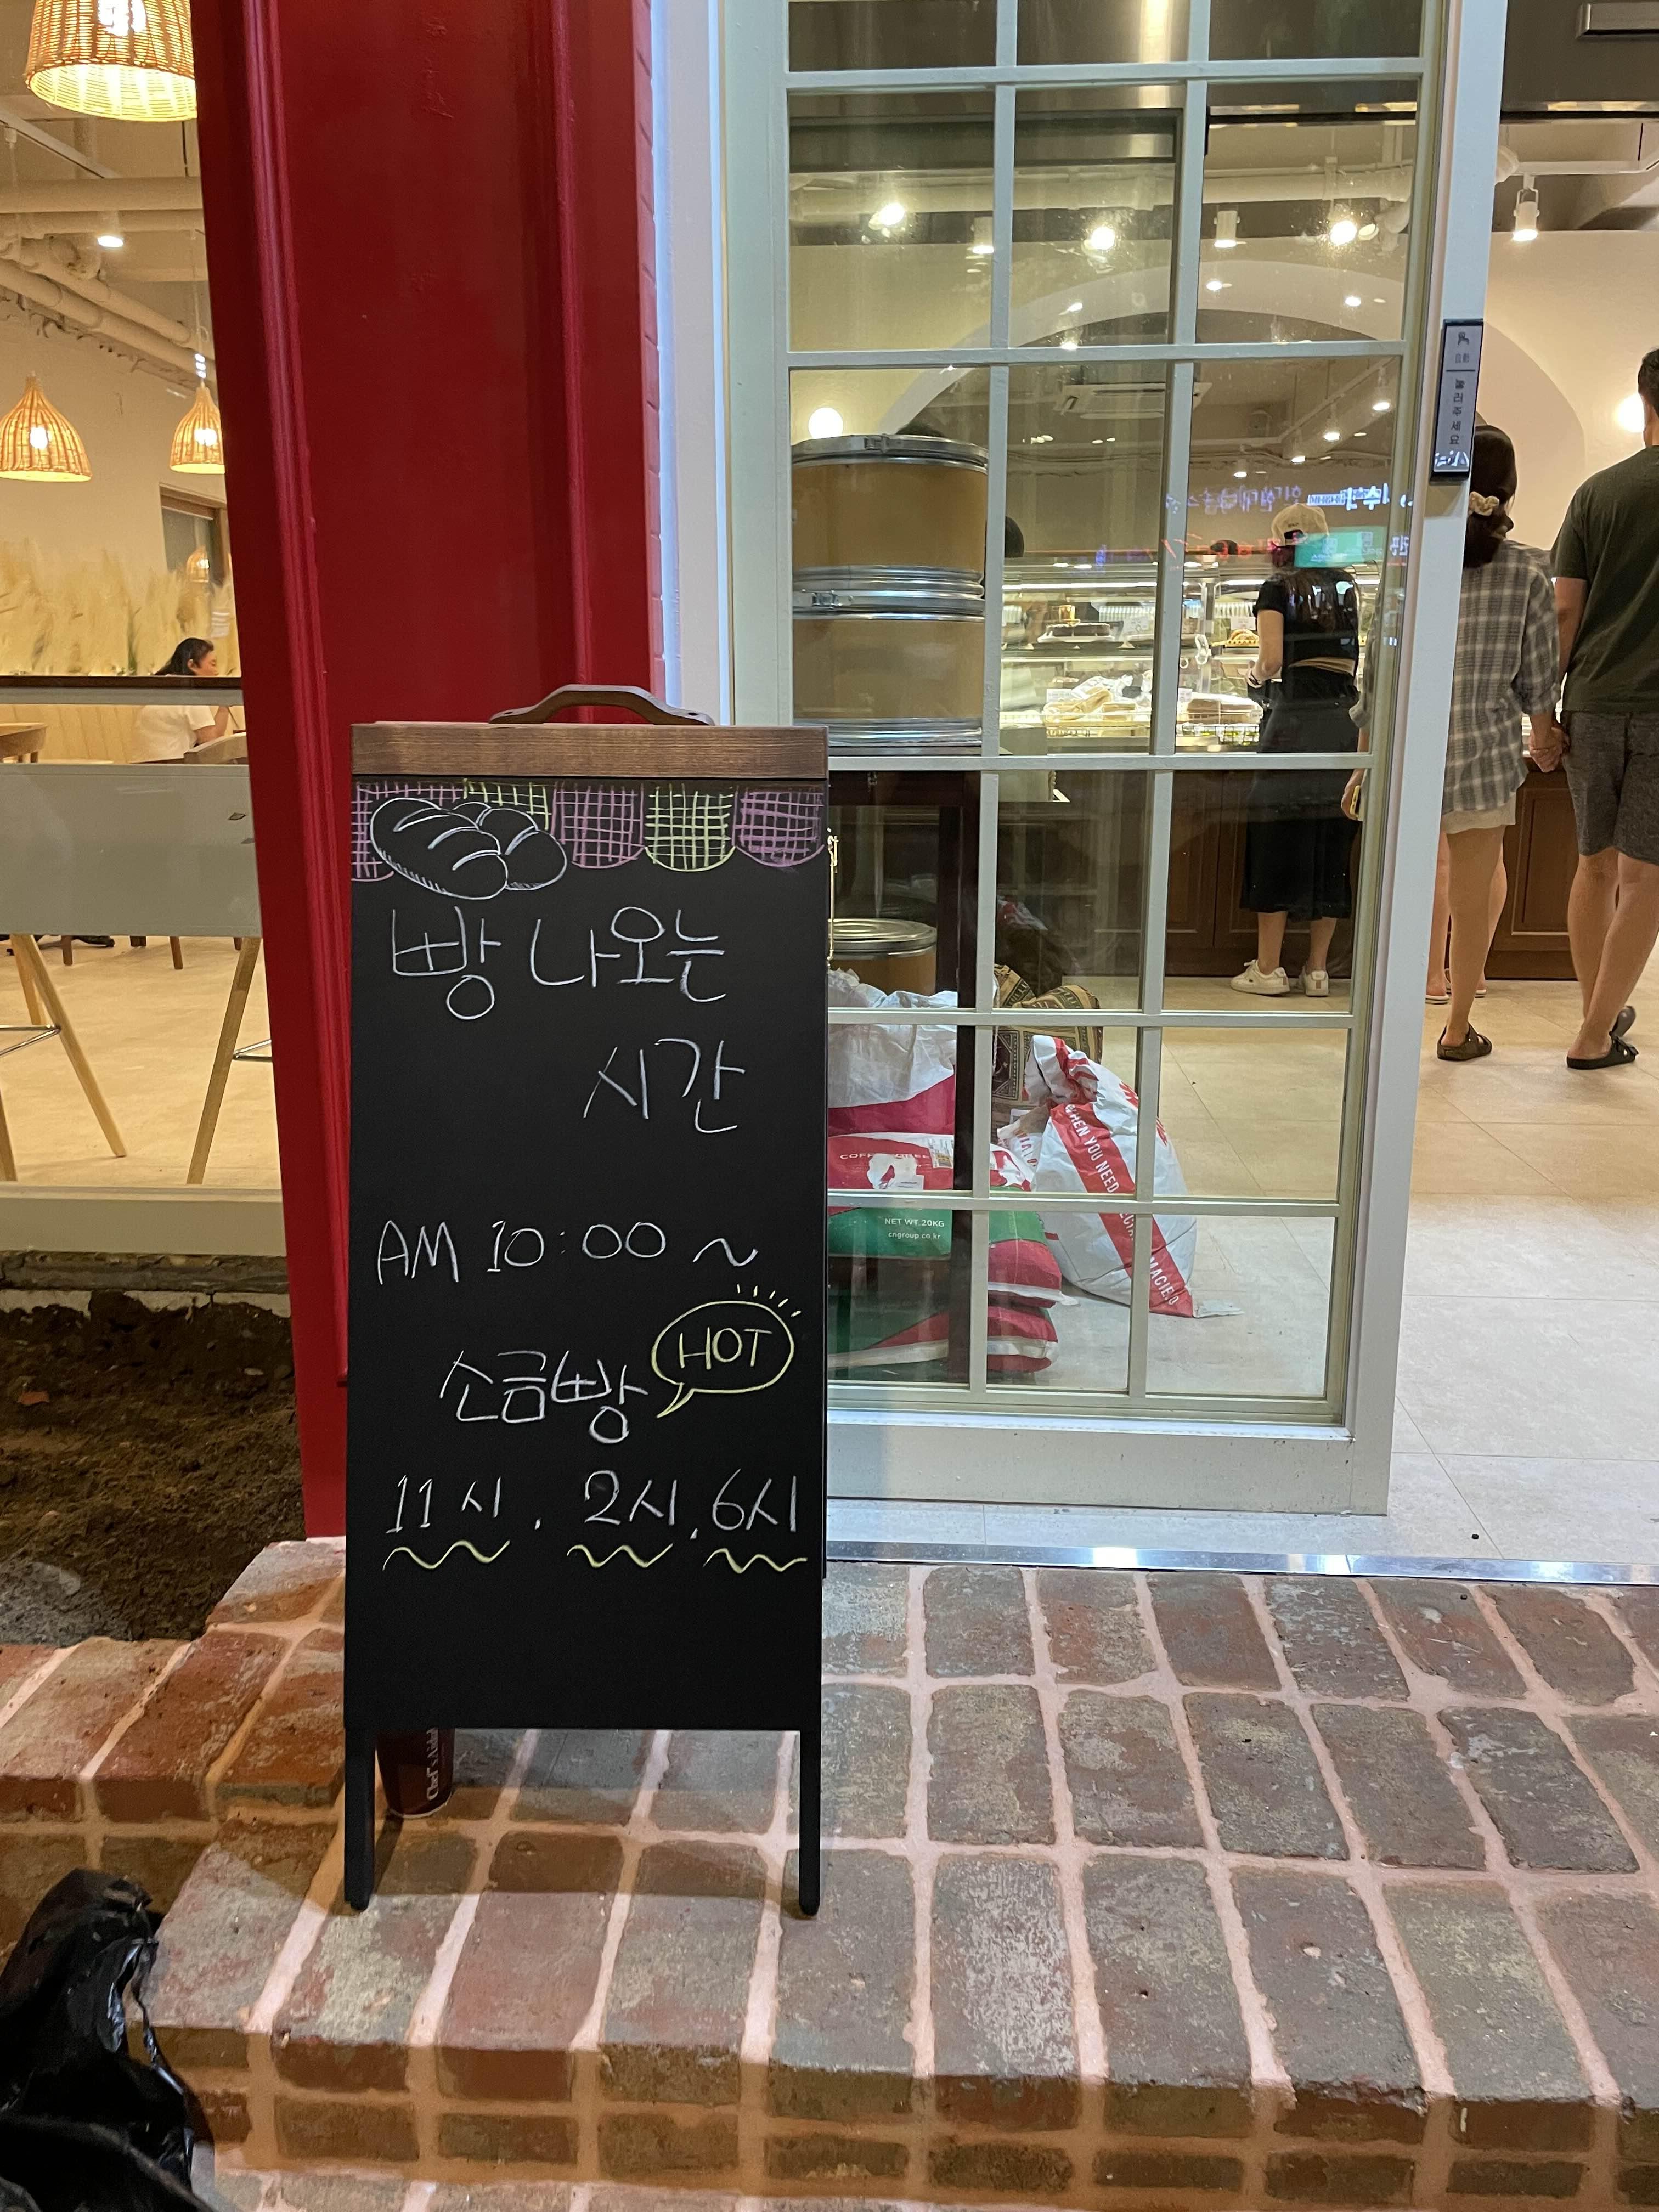 빵 나오는
시간
AM 10:00 ~
HOT
소금빵
11시. 2시. 6시
불러주세요
NET WT 20KG
cngroup.co.kr
WHEN YOU NEED
Chef's